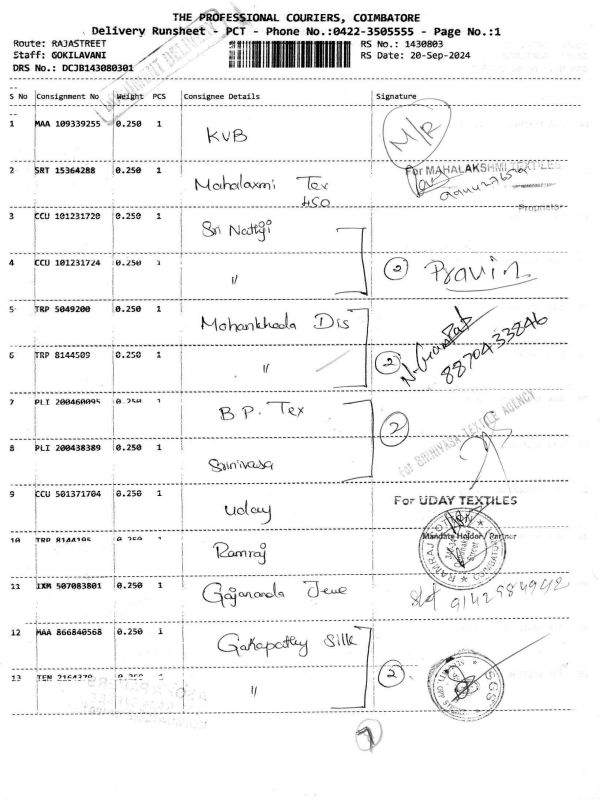 THE PROFESSIONAL COURIERS, COIMBATORE
Delivery Runsheet - PCT - Phone No.:0422-3505555 - Page No.:1
Route: RAJASTREET RS No.: 1430803
Staff: GOKILAVANI RS Date: 20-Sep-2024
DRS No.: DCJB143080301
S No Consignment No Weight PCS Consignee Details Signature
1 MAA 109339255 0.250 1 KVB M/R
2 SRT 15364288 0.250 1 Mahalaxmi Tex
450
For MAHALAKSHMI TEXTILES
Proprietor
3 CCU 101231720 0.250 1 Sri Nathji
4 CCU 101231724 0.250 1 " 2 Pravin
5 TRP 5049200 0.250 1 Mohankheda Dis
6 TRP 8144509 0.250 1 " 2 N. Ganpat
8870433846
7 PLI 200460095 0.250 1 B.P. Tex 2
For SRINIVASA TEXTILE AGENCY
8 PLI 200438389 0.250 1 Srinivasa
9 CCU 501371704 0.250 1 Uday For UDAY TEXTILES
Mandate Holder / Partner
10 TRP 0.250 1 Ramraj RAMRAJ COTTON
COIMBATORE
11 IXM 507083801 0.250 1 Gajananda Jewe
12 MAA 866840568 0.250 1 Ganapathy Silk
13 TEN 2164370 0.250 1 " 2 SGS
7